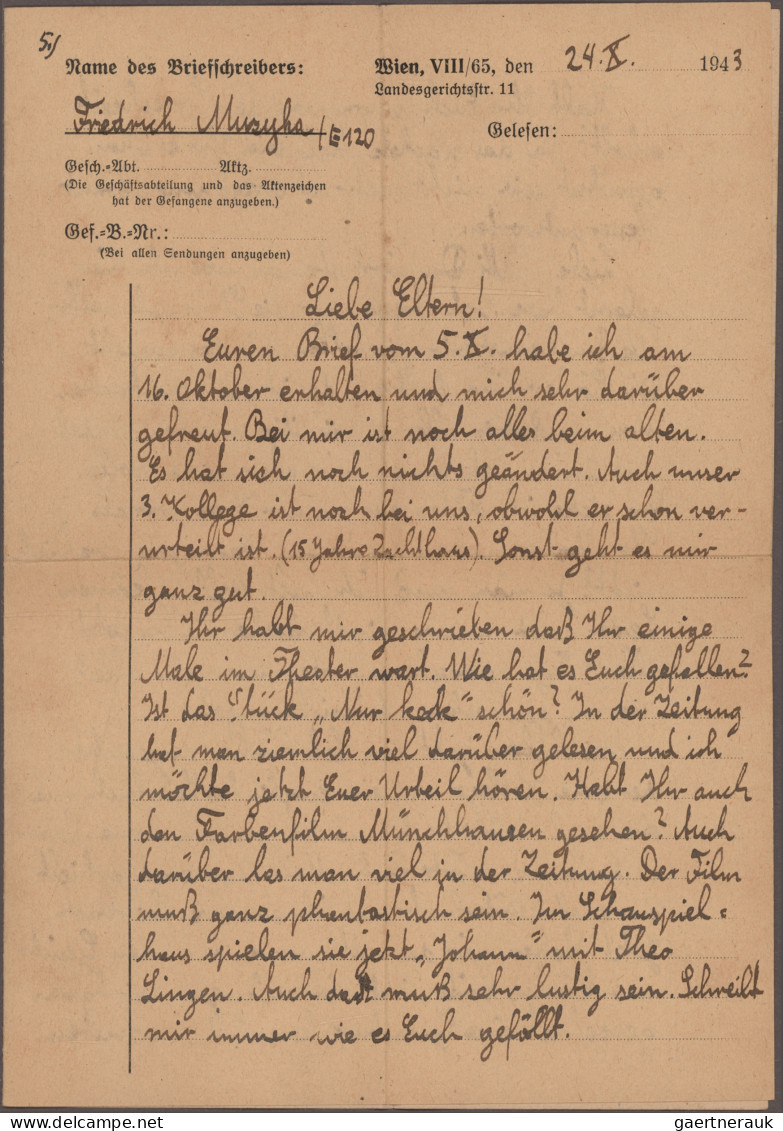 5.)
Name des Briefschreibers:
Wien, VIII/65, den 24.X. 1943
Landesgerichtsstr. 11
Friedrich Muzyka / E 120
Gelesen:
Gesch.-Abt. Aktz.
(Die Geschäftsabteilung und das Aktenzeichen
hat der Gefangene anzugeben.)
Gef.-B.-Nr.:
(Bei allen Sendungen anzugeben)
Liebe Eltern!
Euren Brief vom 5.X. habe ich am
16. Oktober erhalten und mich sehr darüber
gefreut. Bei mir ist noch alles beim alten.
Es hat sich noch nichts geändert. Auch unser
3. Kollege ist noch bei uns, obwohl er schon ver-
urteilt ist. (15 Jahre Zuchthaus). Sonst geht es mir
ganz gut.
Ihr habt mir geschrieben daß Ihr einige
Male im Theater wart. Wie hat es Euch gefallen?
Ist das Stück „Nur keck" schön? In der Zeitung
hat man ziemlich viel darüber gelesen und ich
möchte jetzt Euer Urteil hören. Habt Ihr auch
den Farbenfilm Münchhausen gesehen? Auch
darüber las man viel in der Zeitung. Der Film
muß ganz phantastisch sein. Im Schauspiel=
haus spielen sie jetzt „Johann" mit Theo
Lingen. Auch das muß sehr lustig sein. Schreibt
mir immer wie es Euch gefällt.
www.delcampe.net
gaertnerauk